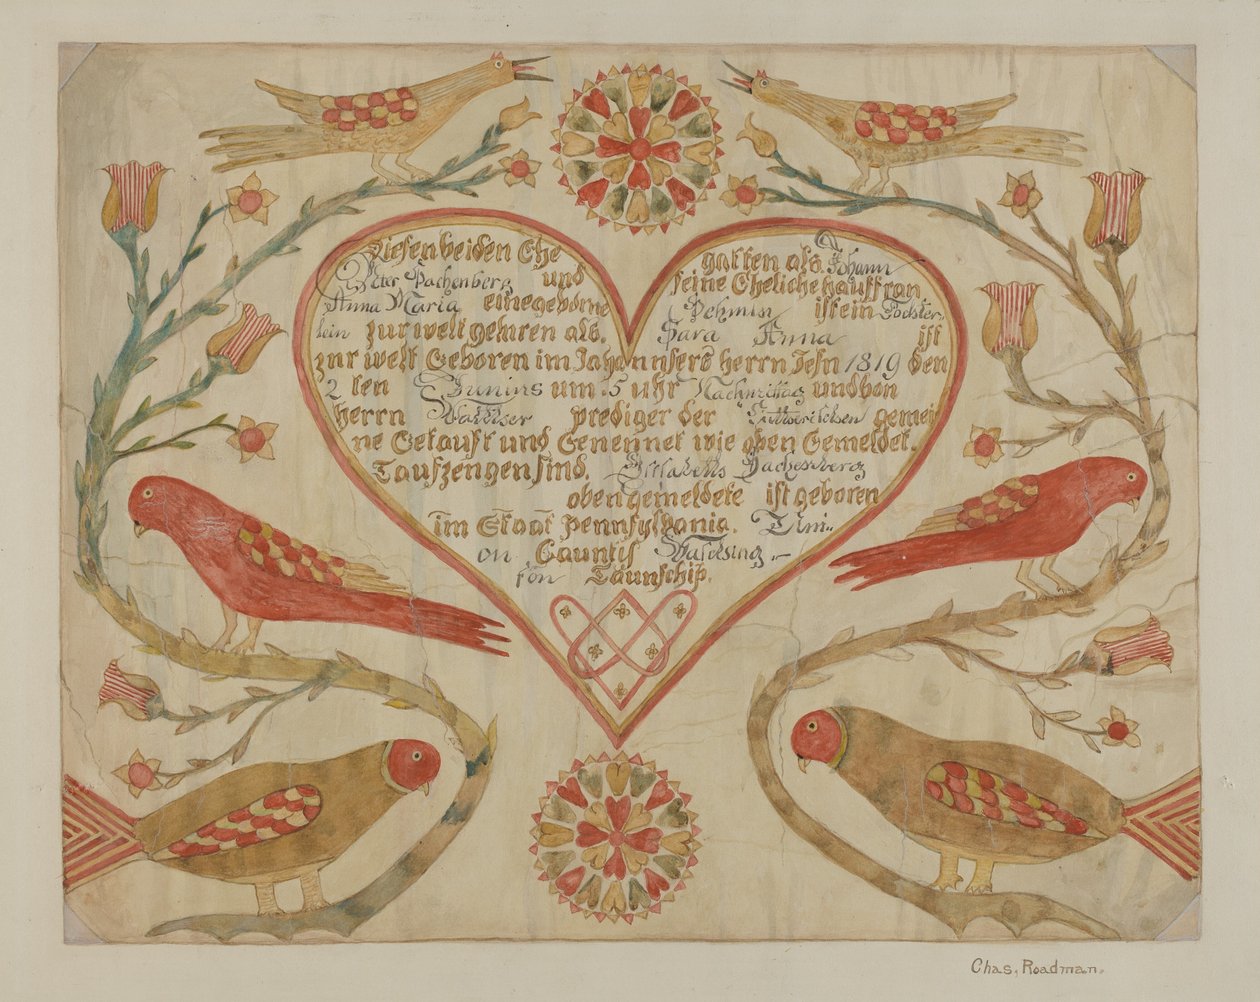 Diesen beiden Ehe gatten als Johann
Peter Pachenberg und seine Eheliche hauffrau
Anna Maria eine geborne Pehmin ist ein Tochter
lein zur welt gehren als. Sara Anna ist
zur welt Geboren im Jahr unsers herrn Jesu 1819 den
2 ten Junius um 5 uhr Nachmittag und von
herrn prediger der gemei
ne Getauft und Genennet wie oben Gemeldet.
Taufzeugen sind. Elisabeth Pachenberg
oben gemeldete ist geboren
im Staat Pennsylvania. Uni
on Caunty
fon Taunschip.
Chas. Roadman.